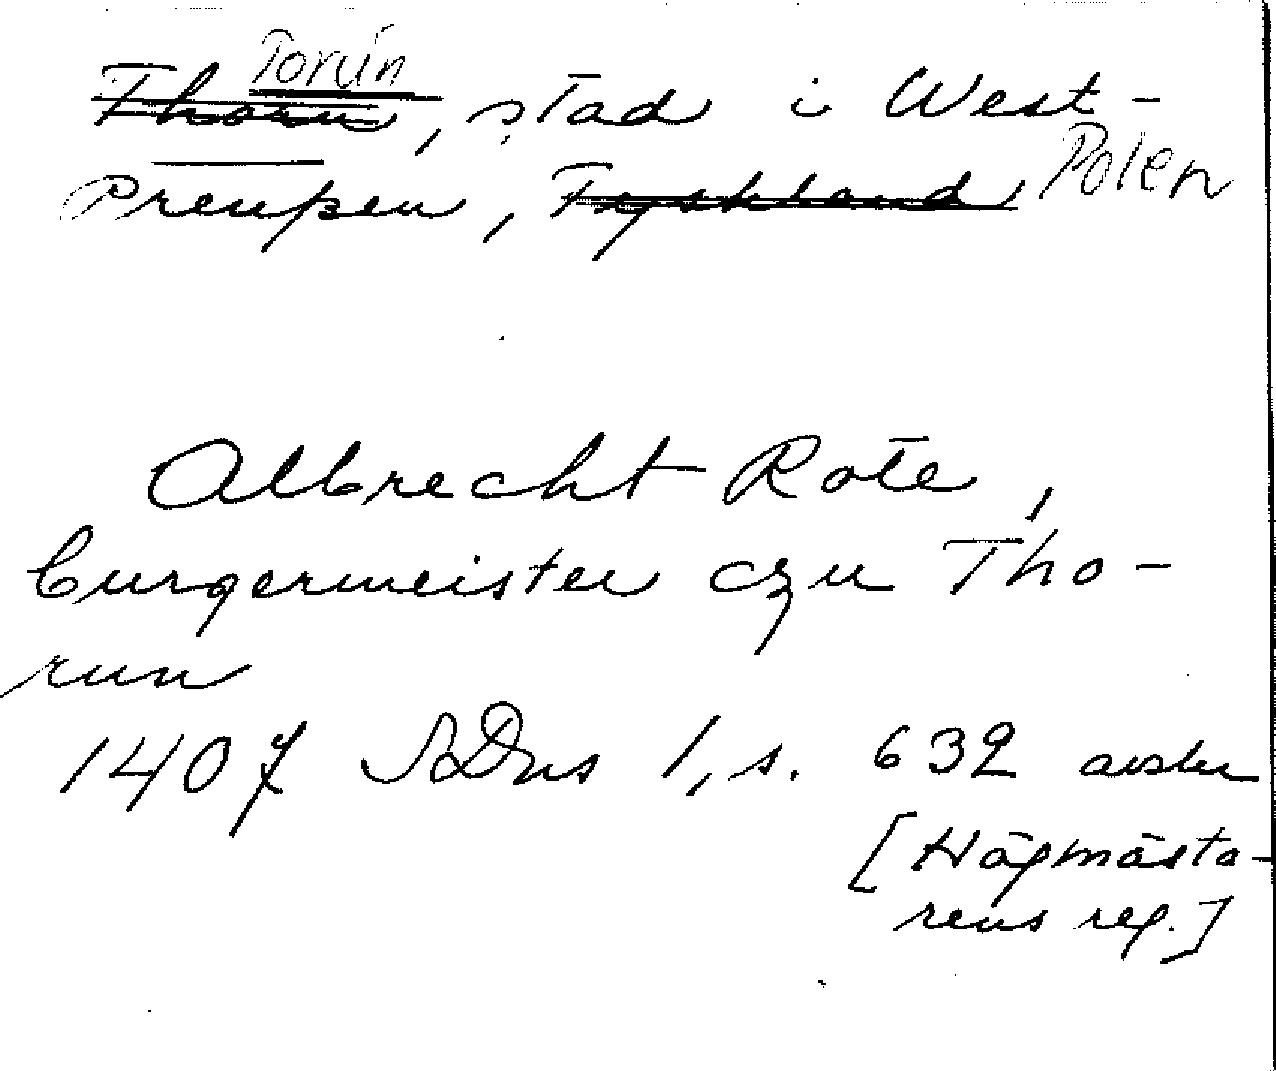 Toruń
Thorn, stad i West-
Preußen, Tyskland Polen
Albrecht Rote,
burgermeister czu Tho-
run
1407 SDns 1, s. 632 avskr
[Högmästa-
rens reg.]